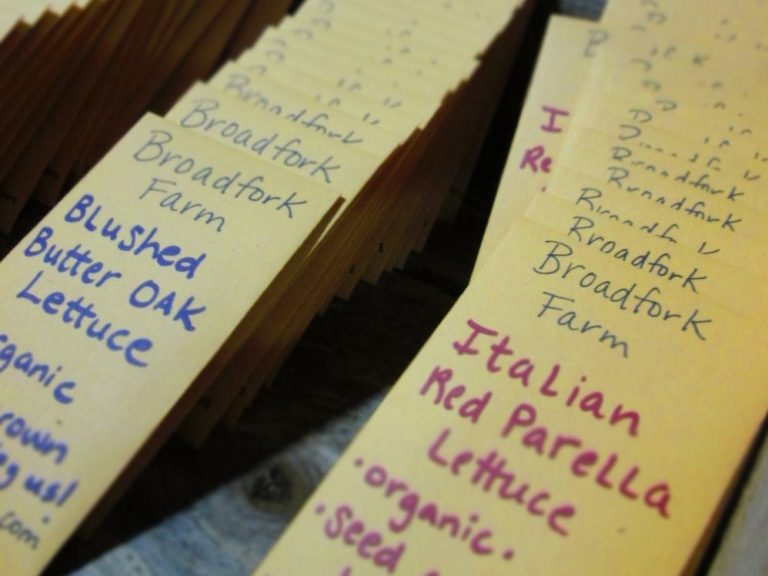 Broadfork
Broadfork
Farm
BLushed
Butter OAK
Lettuce
rganic
rown
us!
com
I
Re
Broadfork
Broadfork
Broadfork
Broadfork
Farm
Italian
Red Parella
Lettuce
•organic•
•Seed